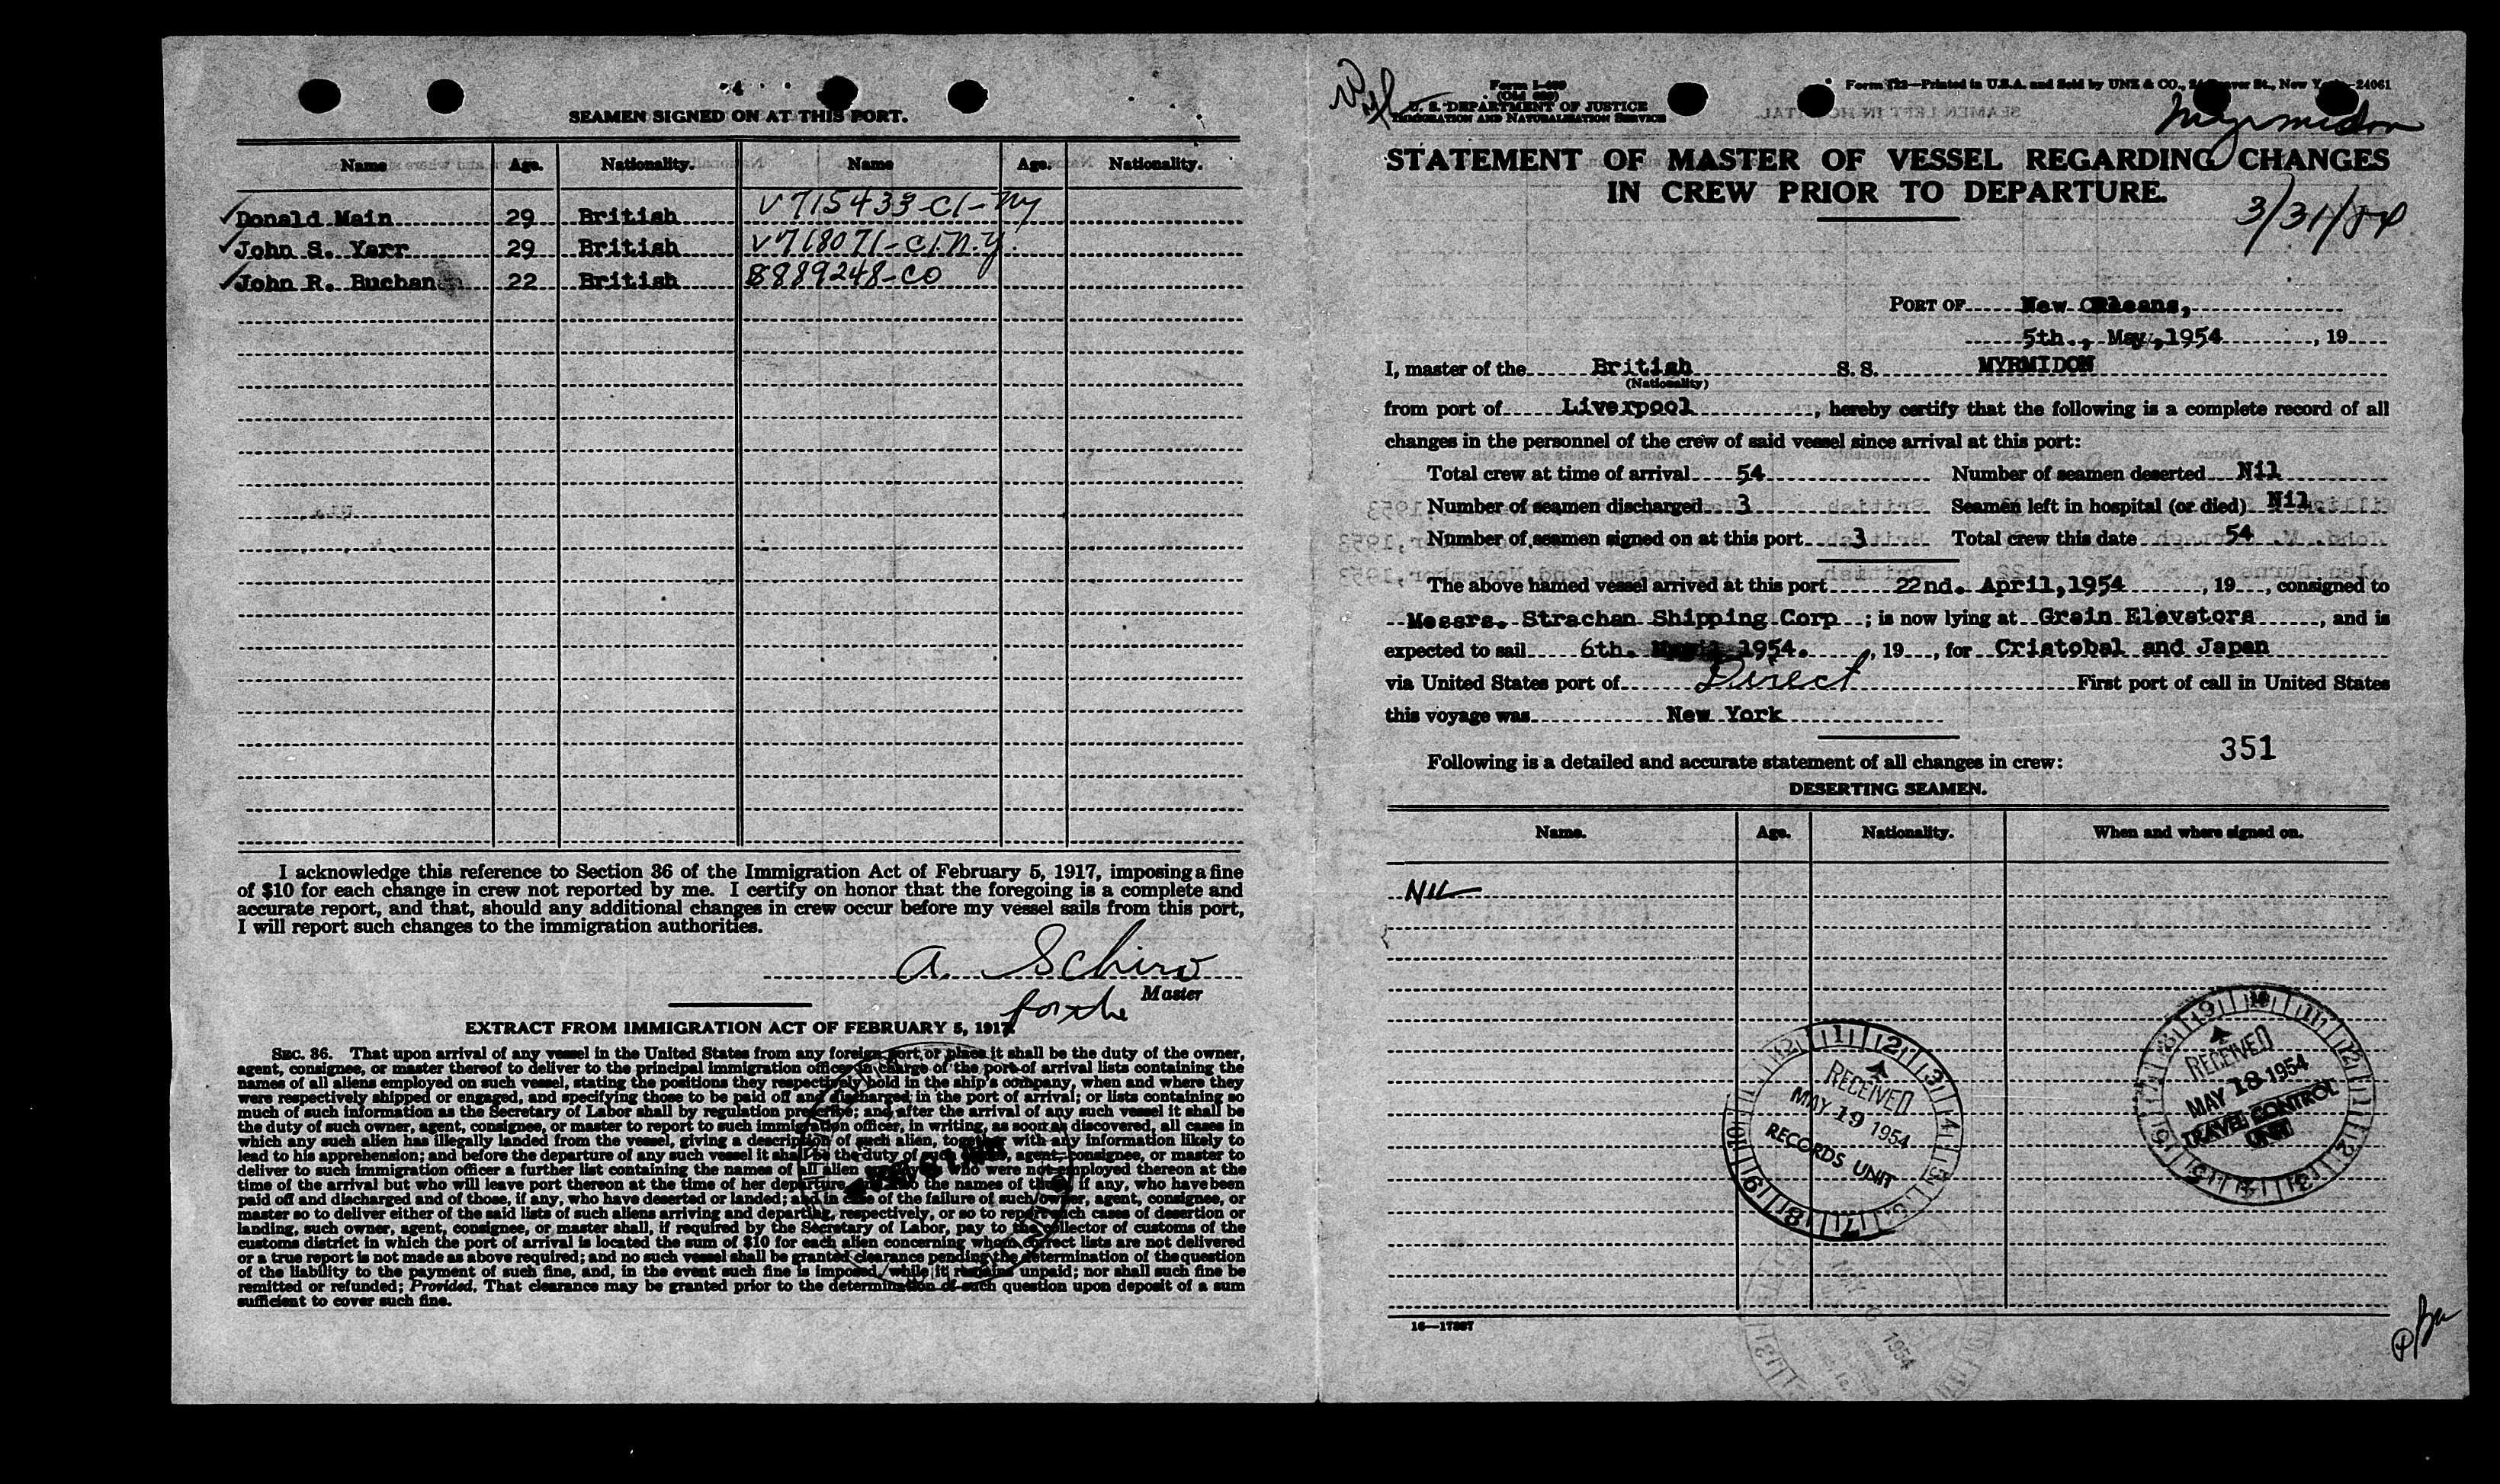 4
SEAMEN SIGNED ON AT THIS PORT.
Name Age. Nationality. Name Age. Nationality.
Donald Main 29 British V715433-C1-NY
John S. Yarr 29 British V718071-C1.N.Y.
John R. Buchan 22 British 8889248-CO
I acknowledge this reference to Section 36 of the Immigration Act of February 5, 1917, imposing a fine
of $10 for each change in crew not reported by me. I certify on honor that the foregoing is a complete and
accurate report, and that, should any additional changes in crew occur before my vessel sails from this port,
I will report such changes to the immigration authorities.
A. Schiro
for the Master
EXTRACT FROM IMMIGRATION ACT OF FEBRUARY 5, 1917.
SEC. 36. That upon arrival of any vessel in the United States from any foreign port or place it shall be the duty of the owner,
agent, consignee, or master thereof to deliver to the principal immigration officer in charge of the port of arrival lists containing the
names of all aliens employed on such vessel, stating the positions they respectively hold in the ship's company, when and where they
were respectively shipped or engaged, and specifying those to be paid off and discharged in the port of arrival; or lists containing so
much of such information as the Secretary of Labor shall by regulation prescribe; and after the arrival of any such vessel it shall be
the duty of such owner, agent, consignee, or master to report to such immigration officer, in writing, as soon as discovered, all cases in
which any such alien has illegally landed from the vessel, giving a description of such alien, together with any information likely to
lead to his apprehension; and before the departure of any such vessel it shall be the duty of such owner, agent, consignee, or master to
deliver to such immigration officer a further list containing the names of all alien employees who were not employed thereon at the
time of the arrival but who will leave port thereon at the time of her departure, and also the names of those, if any, who have been
paid off and discharged and of those, if any, who have deserted or landed; and in case of the failure of such owner, agent, consignee, or
master so to deliver either of the said lists of such aliens arriving and departing, respectively, or so to report such cases of desertion or
landing, such owner, agent, consignee, or master shall, if required by the Secretary of Labor, pay to the collector of customs of the
customs district in which the port of arrival is located the sum of $10 for each alien concerning whom correct lists are not delivered
or a true report is not made as above required; and no such vessel shall be granted clearance pending the determination of the question
of the liability to the payment of such fine, and, in the event such fine is imposed, while it remains unpaid; nor shall such fine be
remitted or refunded; Provided, That clearance may be granted prior to the determination of such question upon deposit of a sum
sufficient to cover such fine.
Form I-489
(Old 689)
U. S. DEPARTMENT OF JUSTICE
IMMIGRATION AND NATURALIZATION SERVICE
Form 122—Printed in U.S.A. and Sold by UNZ & CO., Beaver St., New York—24061
Myrmidon
STATEMENT OF MASTER OF VESSEL REGARDING CHANGES
IN CREW PRIOR TO DEPARTURE.
3/31/54
PORT OF New Orleans,
5th., May, 1954, 19
I, master of the British S. S. MYRMIDON
(Nationality)
from port of Liverpool, hereby certify that the following is a complete record of all
changes in the personnel of the crew of said vessel since arrival at this port:
Total crew at time of arrival 54 Number of seamen deserted Nil
Number of seamen discharged 3 Seamen left in hospital (or died) Nil
Number of seamen signed on at this port 3 Total crew this date 54
The above named vessel arrived at this port 22nd. April, 1954, 19, consigned to
Messrs. Strachan Shipping Corp; is now lying at Grain Elevators, and is
expected to sail 6th. 1954., 19, for Cristobal and Japan
via United States port of Direct First port of call in United States
this voyage was New York
351
Following is a detailed and accurate statement of all changes in crew:
DESERTING SEAMEN.
Name. Age. Nationality. When and where signed on.
NIL
RECEIVED
MAY 19 1954
RECORDS UNIT
RECEIVED
MAY 18 1954
TRAVEL CONTROL
UNIT
16—17887